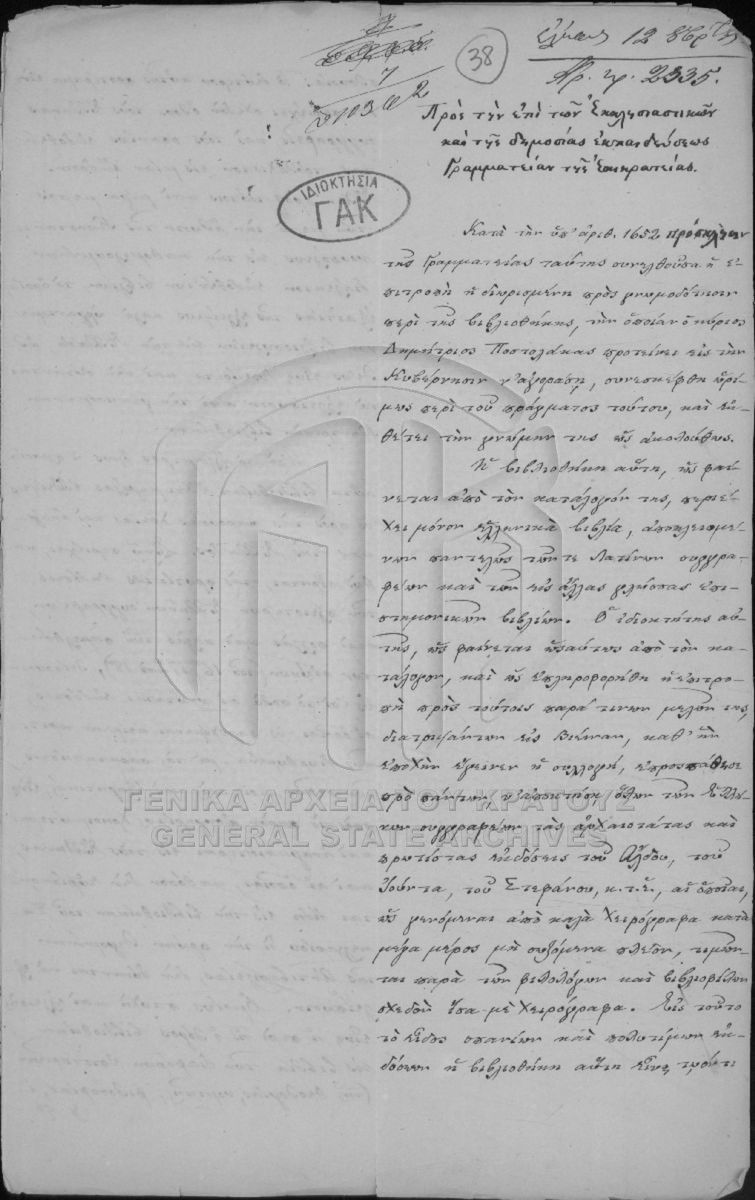 38
12 8βρίου
Αρ. πρ. 2335.
Πρὸς τὴν ἐπὶ τῶν Ἐκκλησιαστικῶν
καὶ τῆς δημοσίας ἐκπαιδεύσεως
Γραμματείαν τῆς Ἐπικρατείας.
ΙΔΙΟΚΤΗΣΙΑ
ΓΑΚ
Κατὰ τὴν ὑπ' ἀριθ. 1652 πρόσκλησιν
τῆς Γραμματείας ταύτης συνελθοῦσα ἡ ἐ-
πιτροπὴ ἡ διωρισμένη πρὸς γνωμοδότησιν
περὶ τῆς βιβλιοθήκης, τὴν ὁποίαν ὁ κύριος
Δημήτριος Ποστολάκας προτείνει εἰς τὴν
Κυβέρνησιν ν' ἀγοράσῃ, συνεσκέφθη ὡρί-
μως περὶ τοῦ πράγματος τούτου, καὶ ἐκ-
θέτει τὴν γνώμην της ὡς ἀκολούθως.
Ἡ βιβλιοθήκη αὕτη, ὡς φαί-
νεται ἀπὸ τὸν κατάλογόν της, περιέ-
χει μόνον ἑλληνικὰ βιβλία, ἀποκλειομέ-
νων παντελῶς τῶν τε Λατίνων συγγρα-
φέων καὶ τῶν εἰς ἄλλας γλώσσας ἐπι-
στημονικῶν βιβλίων. Ὁ ἰδιοκτήτης αὐ-
τῆς, ὡς φαίνεται ὡσαύτως ἀπὸ τὸν κα-
τάλογον, καὶ ὡς ἐπληροφορήθη ἡ ἐπιτρο-
πὴ πρὸς τούτοις παρά τινων μελῶν της,
διατριψάντων εἰς Βιέννην, καθ' ἣν
ἐποχὴν ἐγείνεν ἡ συλλογή, ἐπροσπάθησε
πρὸ πάντων ν' ἀποκτήσῃ ὅλων τῶν Ἑλλή-
νων συγγραφέων τὰς ἀρχαιοτάτας καὶ
πρωτίστας ἐκδόσεις τοῦ Ἄλδου, τοῦ
Ἰούντα, τοῦ Στεφάνου, κ.τ.λ., αἱ ὁποῖαι,
ὡς γενόμεναι ἀπὸ καλὰ χειρόγραφα κατὰ
μέγα μέρος μὴ σωζόμενα πλέον, τιμῶν-
ται παρὰ τῶν φιλολόγων καὶ βιβλιοφίλων
σχεδὸν ἴσα μὲ χειρόγραφα. Εἰς τοῦτο
τὸ εἶδος σπανίων καὶ πολυτίμων ἐκ-
δόσεων ἡ βιβλιοθήκη αὕτη εἶναι
ΓΕΝΙΚΑ ΑΡΧΕΙΑ ΤΟΥ ΚΡΑΤΟΥΣ
GENERAL STATE ARCHIVES